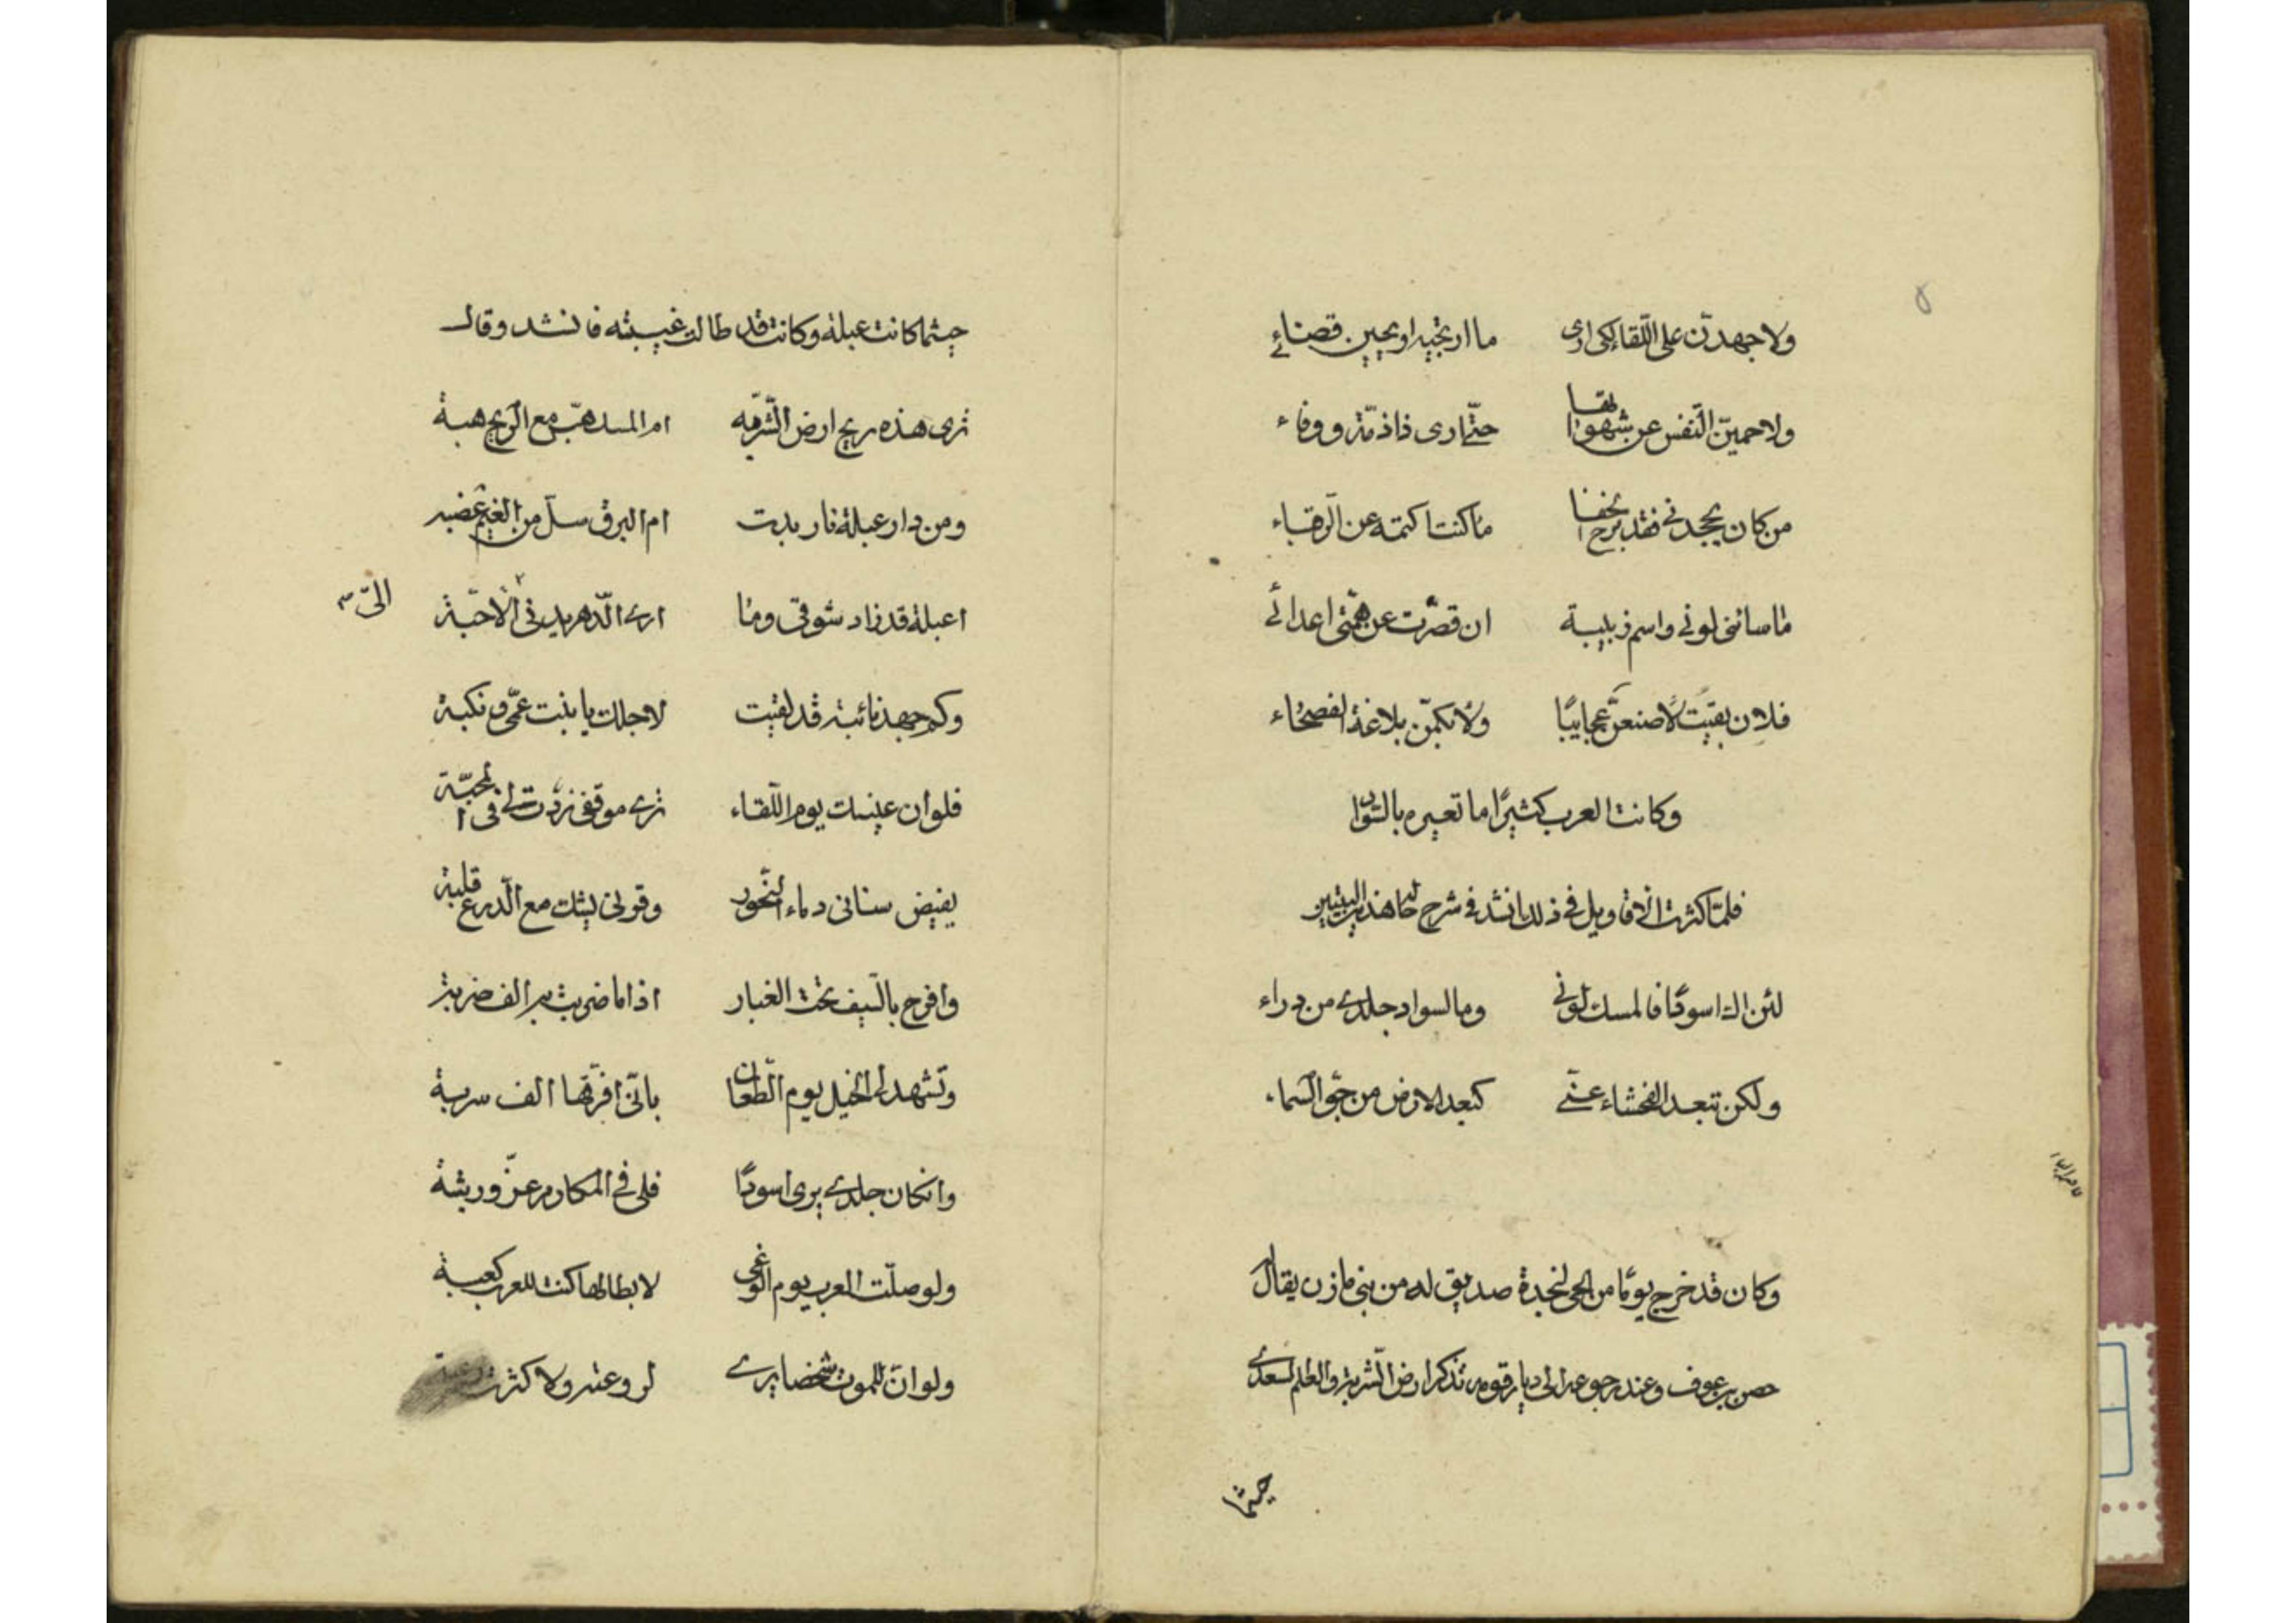 ٥
ولاجهدنّ على اللّقاء لكى ارى ما ارتجيه او يحين قضائے
ولاحمينّ النّفس عن شهواتها حتّى ارى ذا ذمّة ووفاء
من كان يجحدنے فقد برح الخفا ما كنت اكتمه عن الرّقباء
ما سائنى لونے واسم زبيبة ان قصّرت عن همّتى اعدائے
فلان بقيت لاصنعنّ عجايبًا ولابكمنّ بلاغة الفصحاء
وكانت العرب كثيرًا ما تعيره بالسّواد
فلمّا كثرت الاقاويل فے ذلك انشد فے شرح حاله هذين البيتين
لئن اك اسودًا فالمسك لونے وما لسواد جلدے من دواء
ولكن تبعد الفحشاء عنّے كبعد الارض من جوّ السّماء
وكان قد خرج يومًا من الحى لنجدة صديق له من بنى مازن يقال له
حصن بن عوف وعند رجوعه الى ديار قومه تذكر ارض الشّربة والعلم السّعدے
حيثما
حيثما كانت عبلة وكانت قد طالت غيبته فانشد وقال
ترى هذه ريح ارض الشّربّه ام المسك هبّ مع الرّيح هبة
ومن دار عبلة نار بدت ام البرق سلّ من الغيم عضبه
اعبلة قد زاد شوقى وما ارے الدّهر يدنى الاحبّة
الىّ
وكم جهد نائبة قد لقيت لاجلك يا بنت عمّى ونكبة
فلو ان عينك يوم اللّقاء ترے موقفى زدت لے فى المحبّة
يفيض سنانى دماء النّحور وقرنى يشك مع الدّرع قلبه
وافرح بالسّيف تحت الغبار اذا ما ضربت به الف ضربة
وتشهد له الخيل يوم الطّعان بانّى افرّقها الف سربة
وان كان جلدے يرى اسودًا فلى فے المكارم عزّ ورتبة
ولو صلّت العرب يوم الوغى لابطالها كنت للعرب كعبة
ولو انّ للموت شخصا يرے لروعته ولاكثرت رعبه